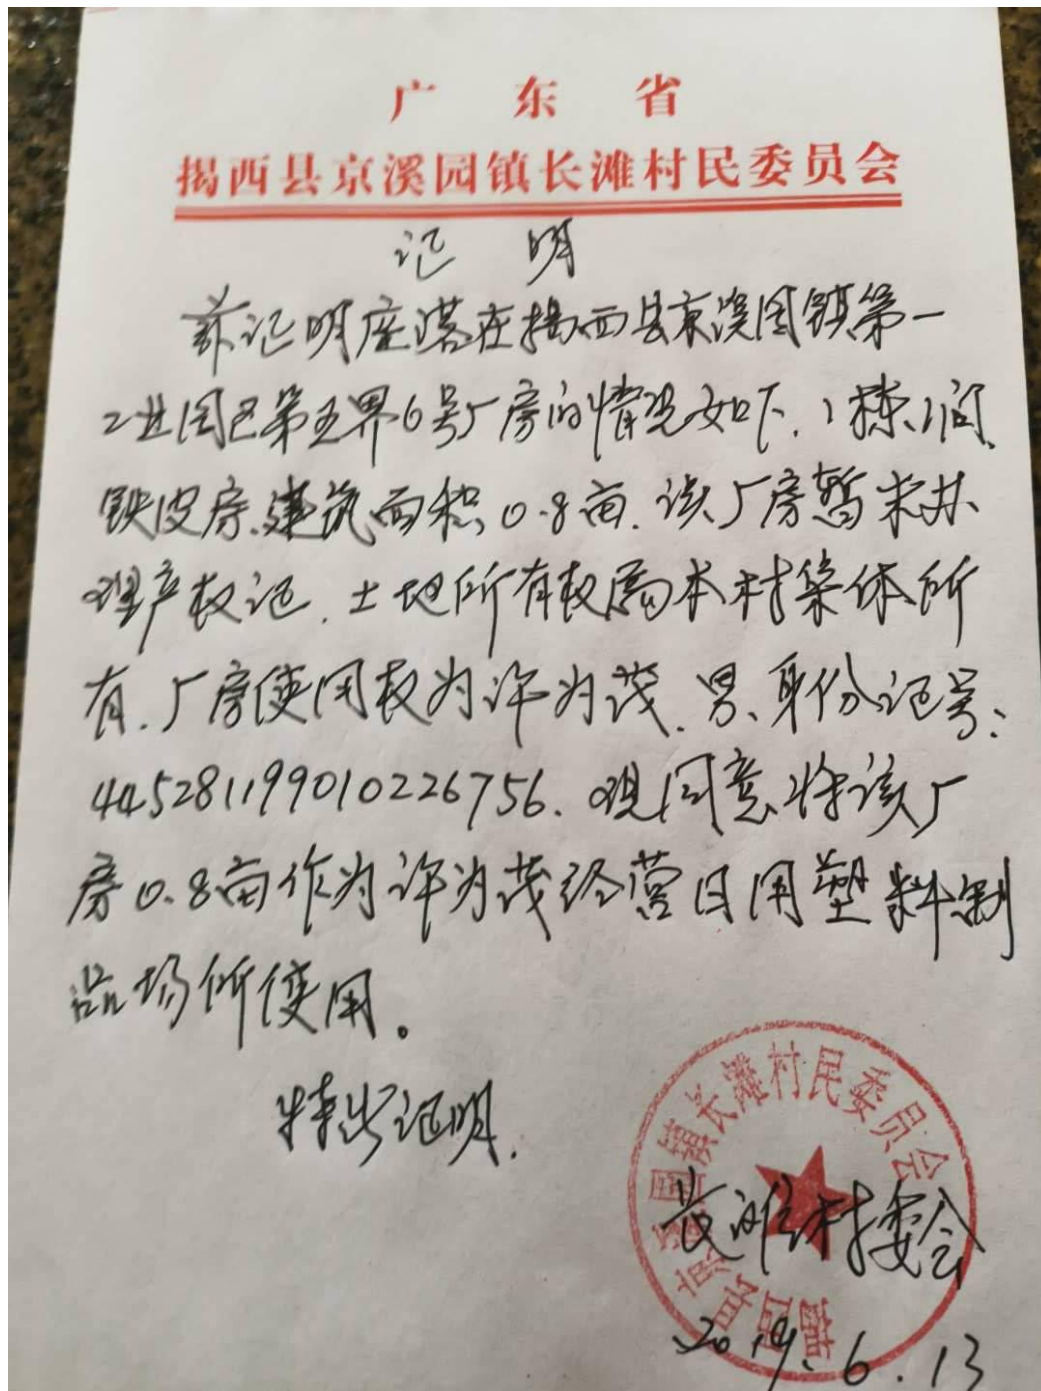 广东省
揭西县京溪园镇长滩村民委员会
证 明
兹证明座落在揭西县京溪园镇第一
工业园区第五界6号厂房的情况如下、1栋1间、
铁皮房、建筑面积0.8亩.该厂房暂未办
理产权证.土地所有权属本村集体所
有.厂房使用权为许为茂.男、身份证号:
445281199010226756.现同意将该厂
房0.8亩作为许为茂经营日用塑料制
品场所使用。
特出证明.
揭西县京溪园镇长滩村民委员会
长滩村委会
2019.6.13